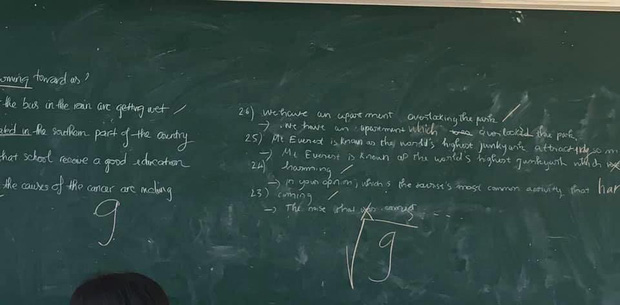 toward us
the bus in the rain are getting wet
in the southern part of the country
that school receive a good education
the causes of the cancer are
9
26) We have an apartment overlooking the park
→ We have an apartment which overlooked the park
25) Mt Everest is known as the world's highest junkyard, attract
→ Mt Everest is known as the world's highest junkyard which
24) harming
→ in your opinion, which's the most common activity that har
23) coming
→ The noise that
√9